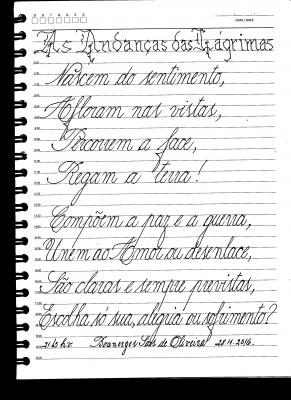 As Andanças das Lágrimas
Nascem do sentimento,
Afloram nas vistas,
Percorrem a face,
Regam a terra!
Compõem a paz e a guerra,
Unem ao Amor ou desenlace,
São claras e sempre previstas,
Escolha só sua, alegria ou sofrimento?
de Oliveira 28.11.2016.